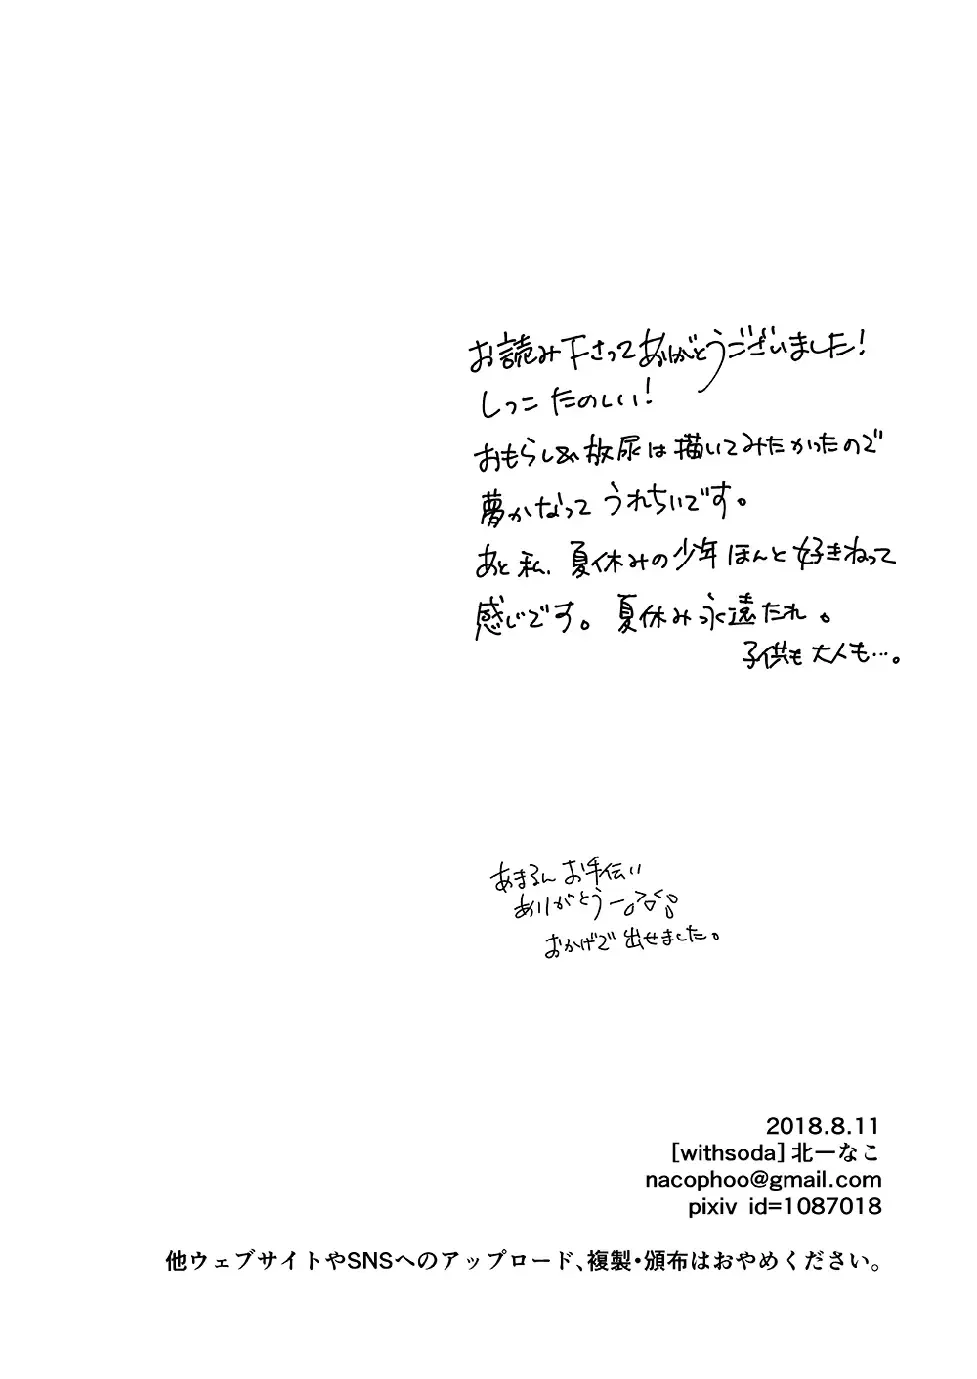 お読み下さってありがとうございました!
しっこたのしい!
おもらし&放尿は描いてみたかったので
夢かなってうれちいです。
あと私、夏休みの少年ほんと好きねって
感じです。夏休み永遠たれ。
子供も大人も…。
あまるんお手伝い
ありがとうー
おかげで出せました。
2018.8.11
[withsoda]北一なこ
nacophoo@gmail.com
pixiv id=1087018
他ウェブサイトやSNSへのアップロード、複製・頒布はおやめください。